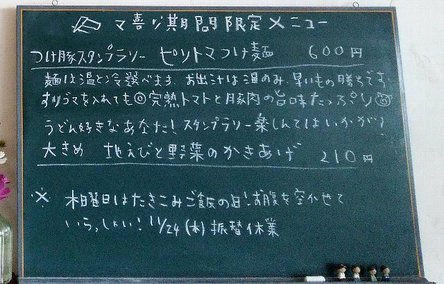 マ喜リ期間限定メニュー
つけ豚スタンプラリー ピリトマつけ麺 600円
麺は温と冷選べます お出汁は温のみ 早いもの勝ちです。
すりゴマを入れても◎完熟トマトと豚肉の旨味たっぷり
うどん好きなあなた! スタンプラリー楽しんではいかが?
大きめ 地えびと野菜のかきあげ 210円
※ 木曜日はたきこみご飯の日!お腹を空かせて
いらっしゃい! 11/24(木)振替休業